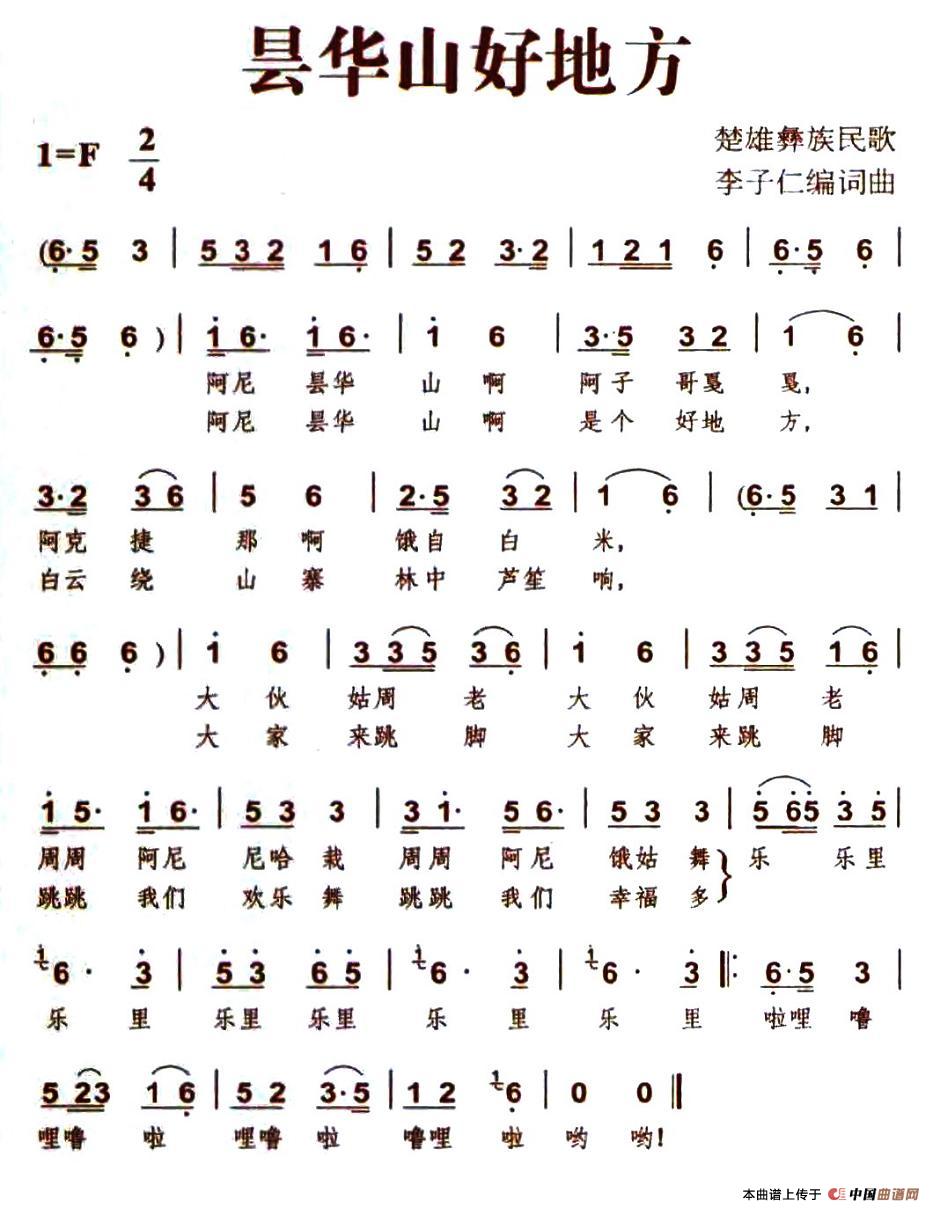 昙华山好地方
1=F 2/4
楚雄彝族民歌
李子仁编词曲
(6·5 3 | 5 3 2 1 6 | 5 2 3·2 | 1 2 1 6 | 6·5 6 |
6·5 6 ) | 1 6· 1 6· | 1 6 | 3·5 3 2 | 1 6 |
阿尼 昙华 山 啊 阿子 哥戛 戛,
阿尼 昙华 山 啊 是个 好地 方,
3·2 3 6 | 5 6 | 2·5 3 2 | 1 6 | (6·5 3 1 |
阿克 捷 那 啊 饿自 白 米,
白云 绕 山 寨 林中 芦笙 响,
6 6 6 ) | 1 6 | 3 3 5 3 6 | 1 6 | 3 3 5 1 6 |
大 伙 姑周 老 大 伙 姑周 老
大 家 来跳 脚 大 家 来跳 脚
1 5· 1 6· | 5 3 3 | 3 1· 5 6· | 5 3 3 | 5 6 5 3 5 |
周周 阿尼 尼哈 栽 周周 阿尼 饿姑 舞 乐 乐里
跳跳 我们 欢乐 舞 跳跳 我们 幸福 多
1 6· 3 | 5 3 6 5 | 1 6· 3 | 1 6· 3 ‖: 6·5 3 |
乐 里 乐里 乐里 乐 里 乐 里 啦哩 噜
5 2 3 1 6 | 5 2 3·5 | 1 2 1 6 | 0 0 ‖
哩噜 啦 哩噜 啦 噜哩 啦 哟 哟!
本曲谱上传于 中国曲谱网